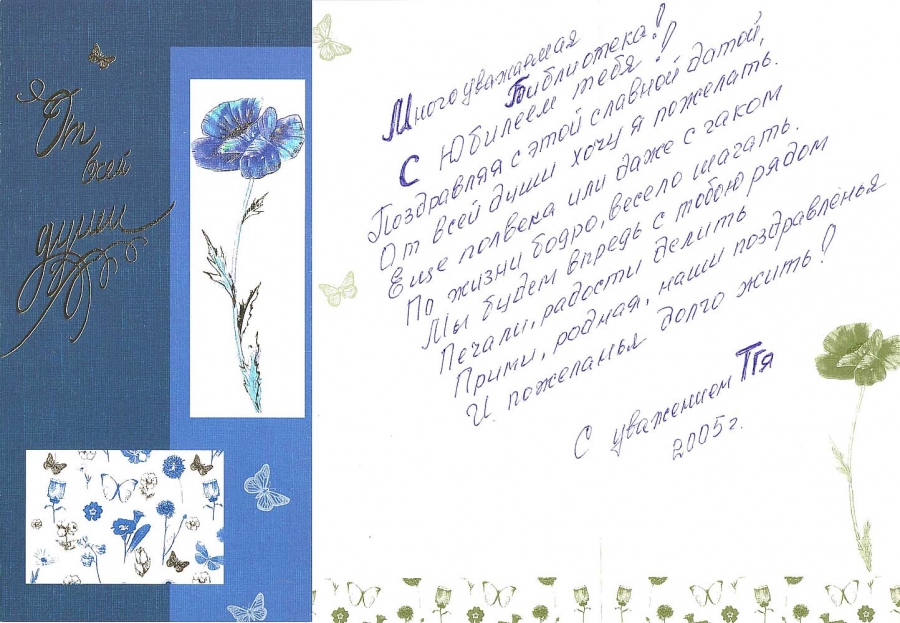 От
всей
души
Многоуважаемая
Библиотека!
С Юбилеем тебя!
Поздравляя с этой славной датой,
От всей души хочу я пожелать.
Еще полвека или даже с гаком
По жизни бодро, весело шагать.
Мы будем впредь с тобою рядом
Печали, радости делить
Прими, родная, наши поздравленья
И пожеланья долго жить!
С уважением
2005 г.